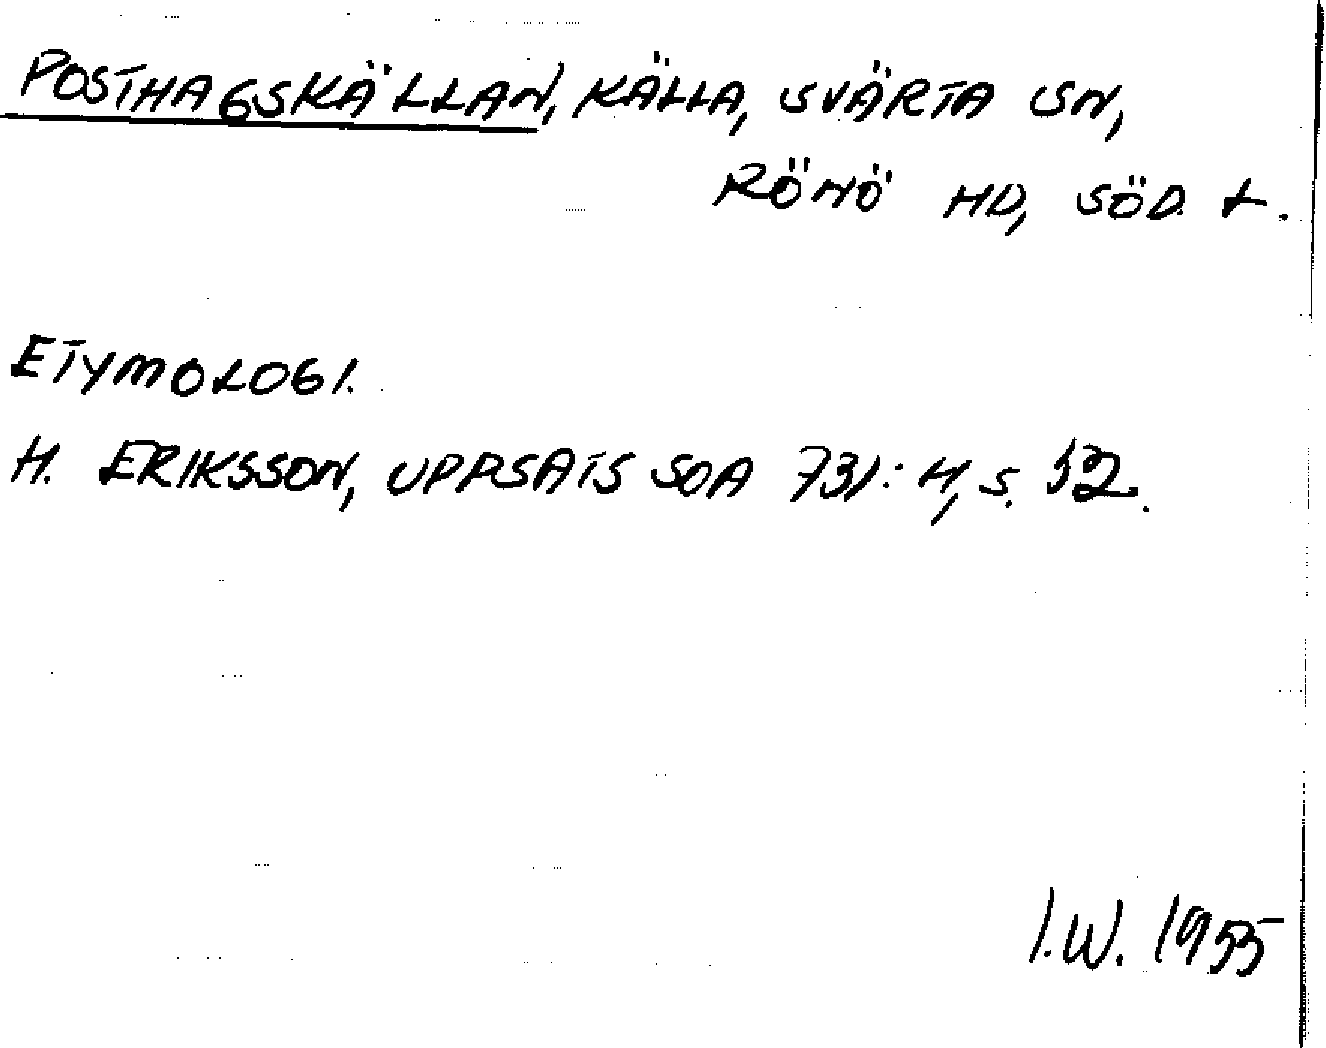 POSTHAGSKÄLLAN, KÄLLA, SVÄRTA SN,
RÖNÖ HD, SÖD. L.
ETYMOLOGI.
H. ERIKSSON, UPPSATS SOA 731: H, S.
I.W. 1955